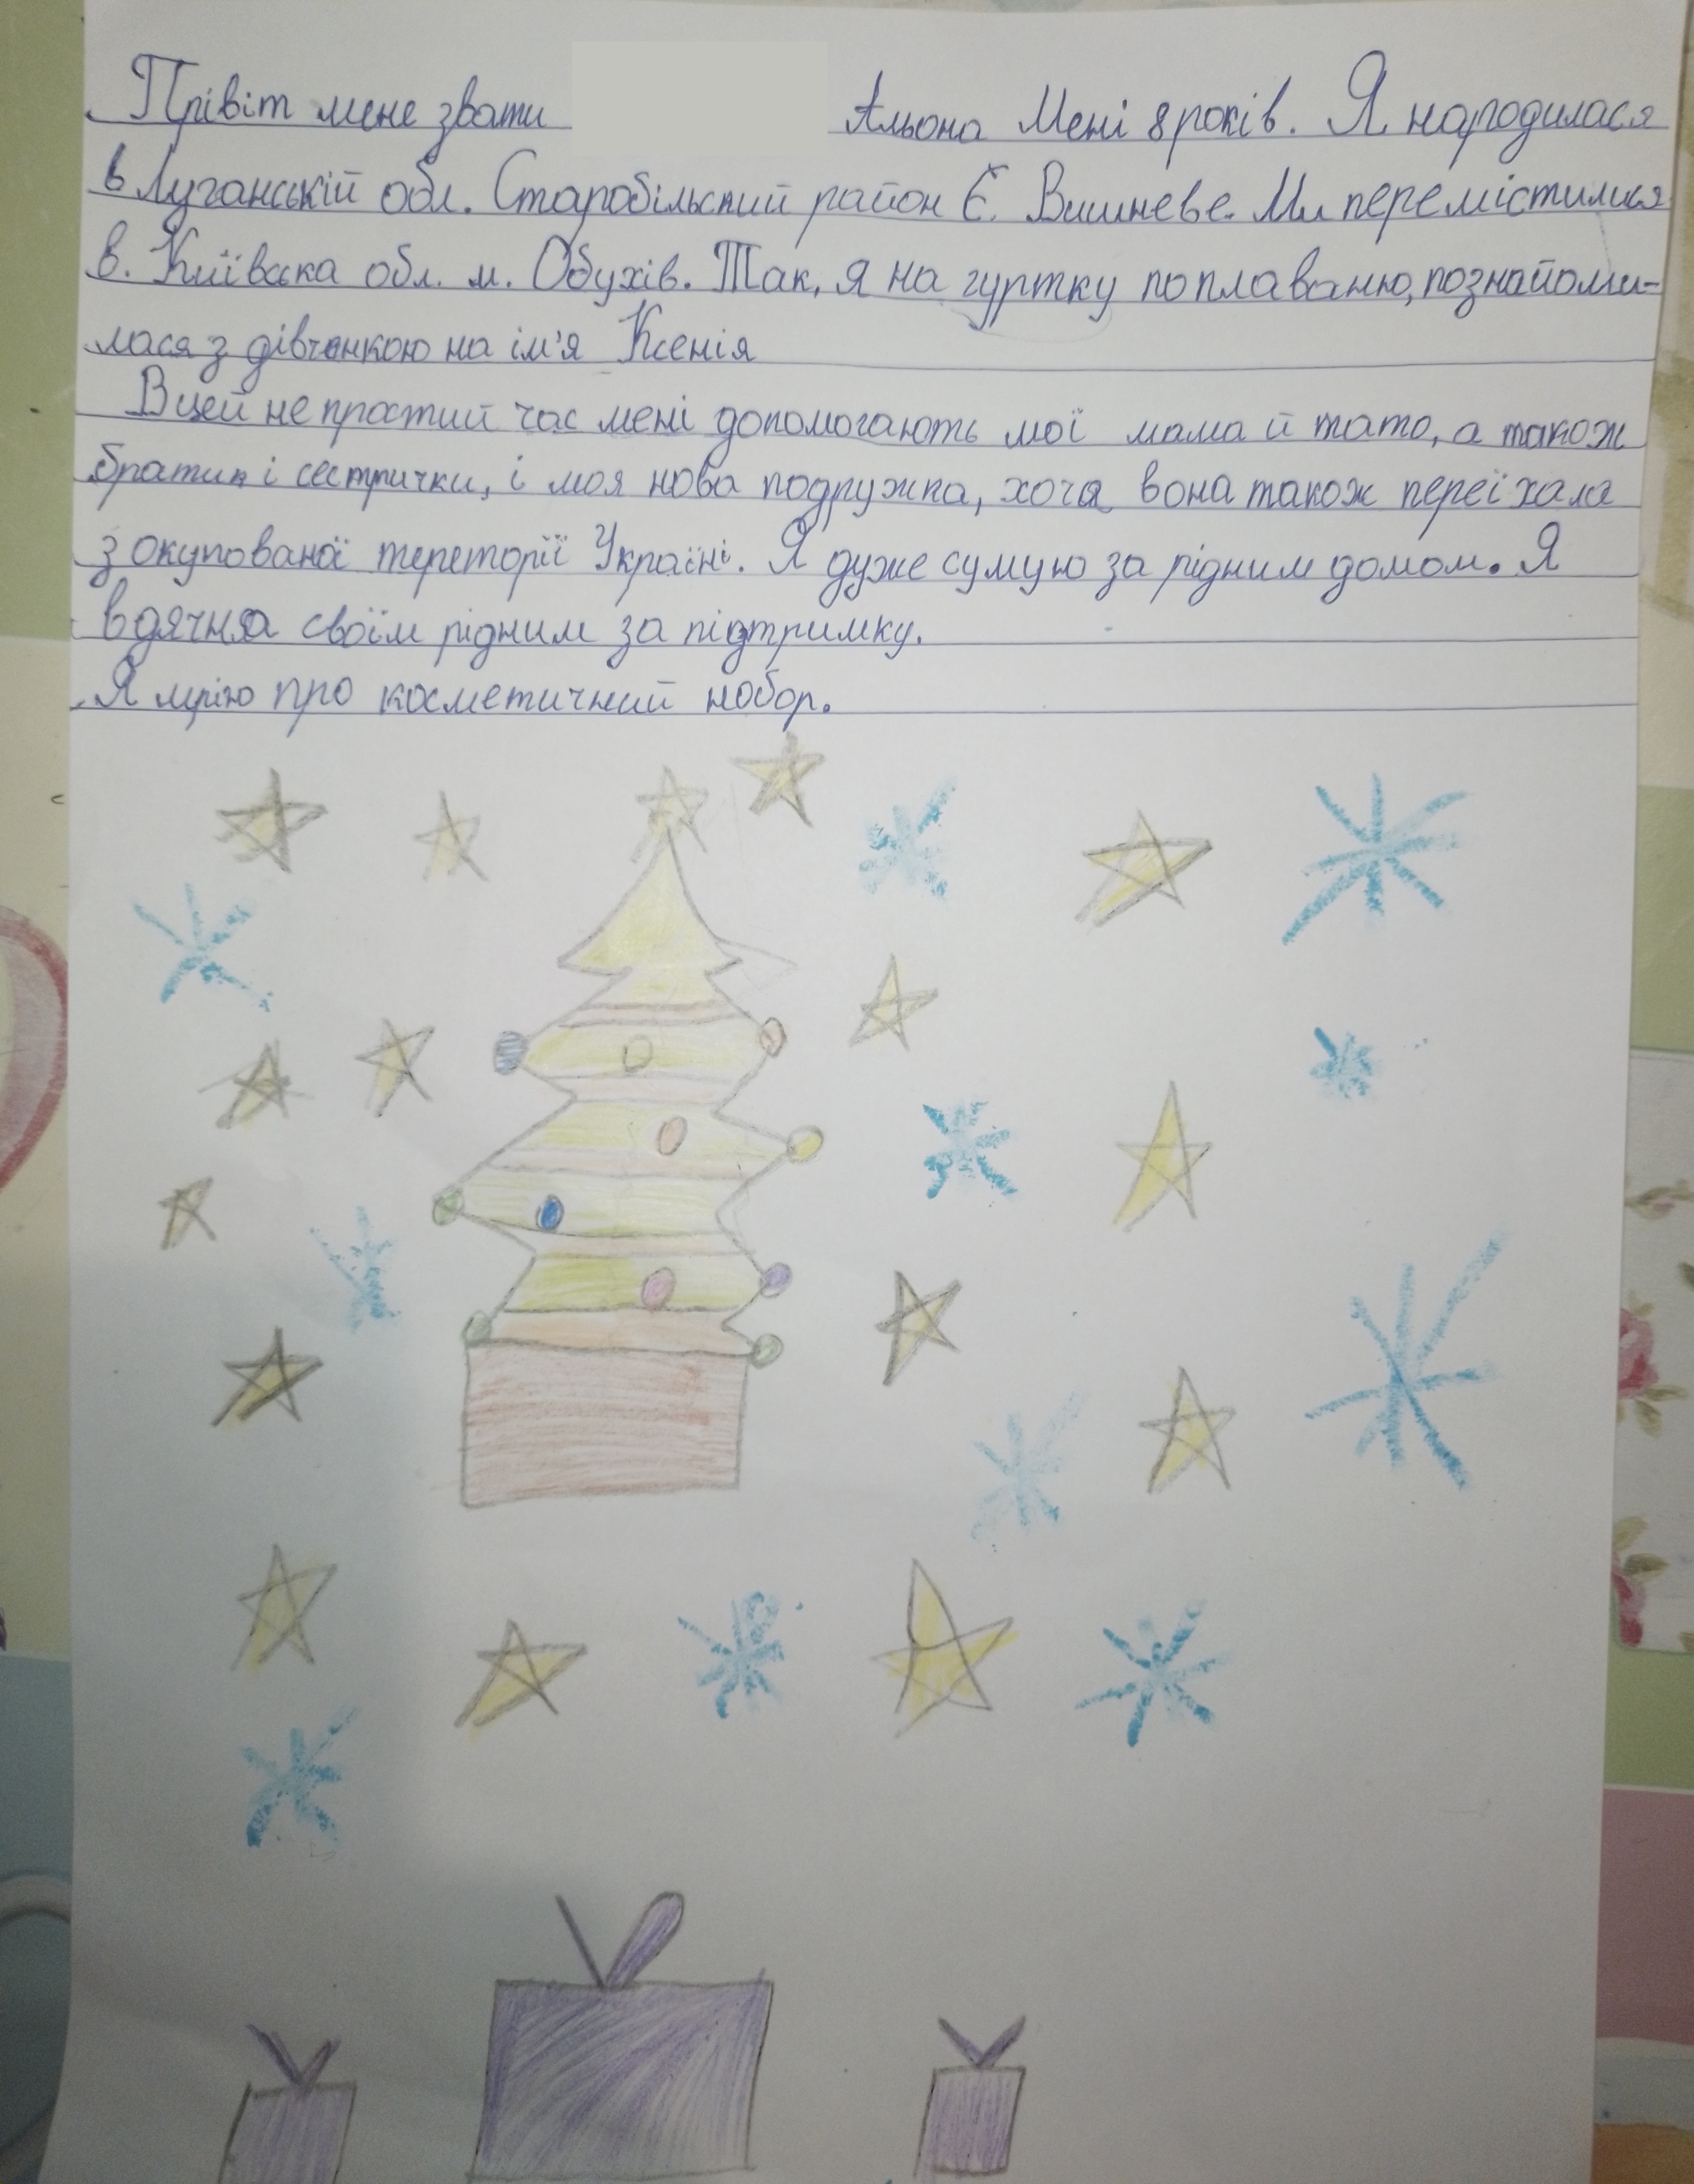 Прівіт мене звати Альона Мені 8 років. Я народилася
в Луганській обл. Старобільський район Є. Вишневе. Ми перемістилися
в. Київська обл. м. Обухів. Так, я на гуртку по плаванню, познайоми-
лася з дівчинкою на ім'я Ксенія
В цей не простий час мені допомогають мої мама й тато, а також
братик і сестрички, і моя нова подружка, хочя вона також переїхала
з окупованої тереторії Україні. Я дуже сумую за рідним домом. Я
вдячна своїм рідним за підтримку.
Я мрію про косметичний набор.